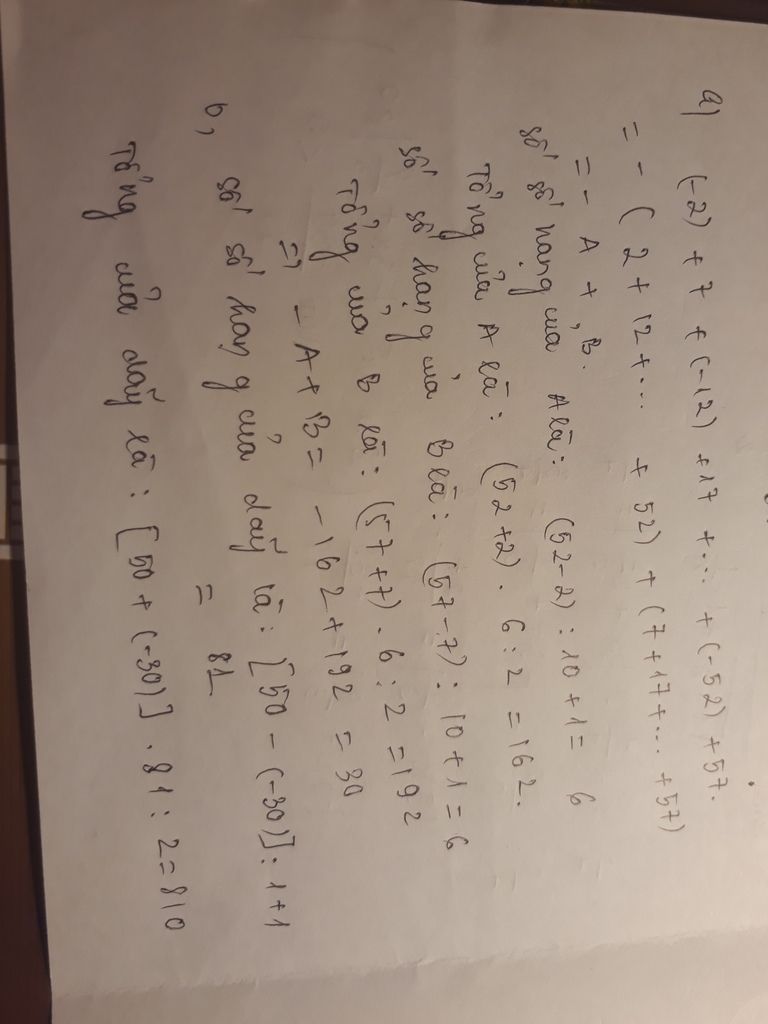 a) (-2) + 7 + (-12) + 17 + ... + (-52) + 57.
= - (2 + 12 + ... + 52) + (7 + 17 + ... + 57)
= - A + B.
số số hạng của A là: (52-2) : 10 + 1 = 6
Tổng của A là: (52+2) . 6 : 2 = 162.
số số hạng của B là: (57-7) : 10 + 1 = 6
Tổng của B là: (57+7) . 6 : 2 = 192
=> - A + B = - 162 + 192 = 30
b, số số hạng của dãy là: [50 - (-30)] : 1 + 1
= 81
Tổng của dãy là: [50 + (-30)] . 81 : 2 = 810